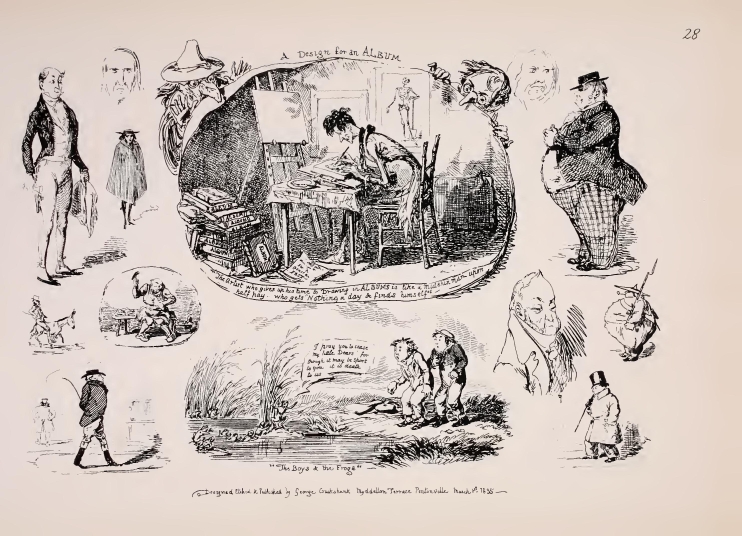 28
A Design for an ALBUM
The artist who gives up his time to Drawing in ALBUMS is like a
half pay. who gets Nothing a day & finds himself
I pray you to cease
my little Dears for
though it may be Sport
to you it is death
to us
"The Boys & the Frogs"
Designed Etched & Published by George Cruikshank Myddelton Terrace Pentonville March 1st 1835